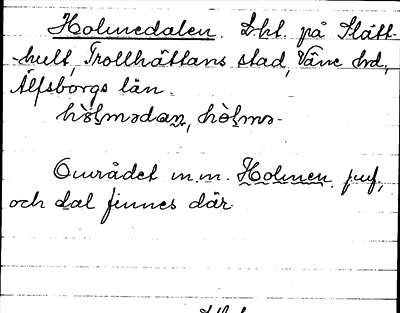 Holmedalen. Lht. på Slätt-
hult, Trollhättans stad, Väne hd,
Älfsborgs län.
hòl̥mədan̥, hòl̥mə-
Området m.m. Holmen, puf,
och dal finnes där.